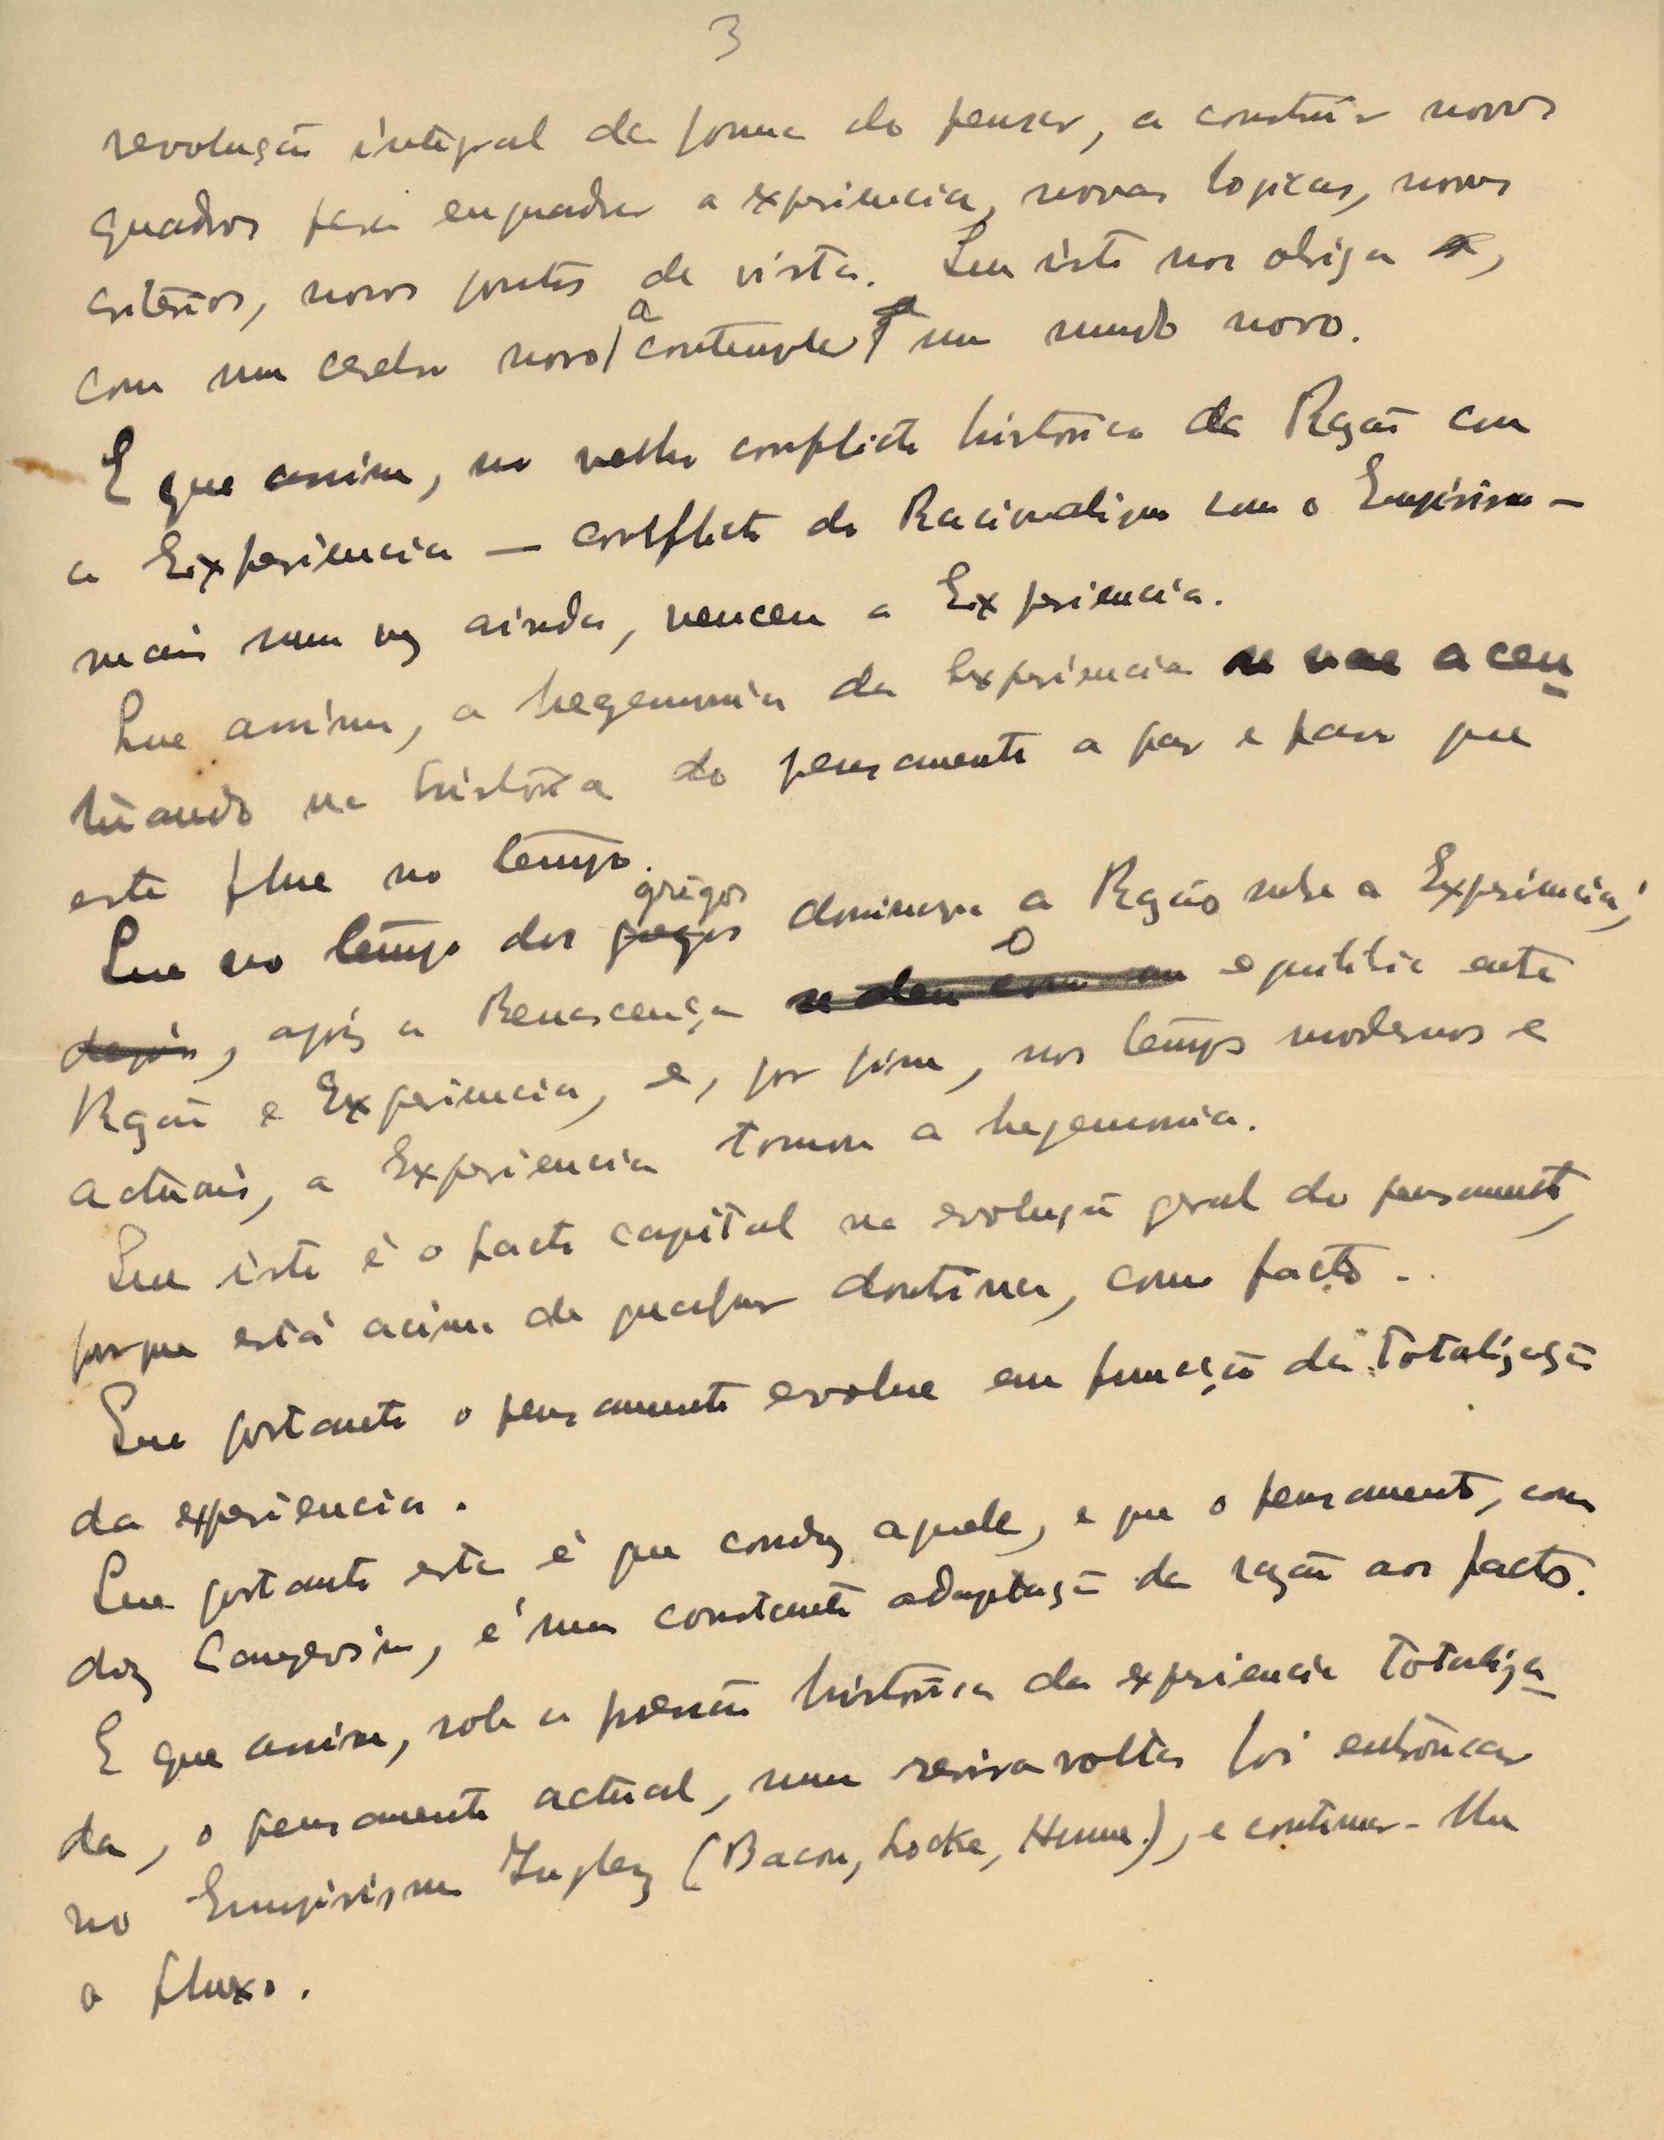 3
revolução integral da forma do pensar, a construir novos
quadros para enquadrar a experiencia, novas logicas, novos
critérios, novos pontos de vista. Que isto nos obriga a,
com um cerebro novo, a contemplar um mundo novo.
E que assim, no velho conflicto historico da Razão com
a Experiencia — conflicto do Racionalismo com o Empirismo —
mais uma vez ainda, venceu a Experiencia.
Que assim, a hegemonia da Experiencia se vae acen
tuando na história do pensamento a par e passo que
este flue no tempo.
Que no tempo dos gregos dominava a Razão sobre a Experiencia;
depois, após a Renascença se deu o equilibrio entre
Razão e Experiencia, e, por fim, nos tempos modernos e
actuais, a Experiencia tomou a hegemonia.
Que isto é o facto capital na evolução geral do pensamento,
porque está acima de qualquer doutrina, como facto.
Que portanto o pensamento evolue em função da totalização
da experiencia.
Que portanto esta é que conduz aquele, e que o pensamento, como
diz Langevin, é uma constante adaptação da razão aos factos.
E que assim, sob a pressão histórica da experiencia totaliza
da, o pensamento actual, numa reviravolta foi entroncar
no Empirismo Inglez (Bacon, Locke, Hume), e continuar-lhe
o fluxo.